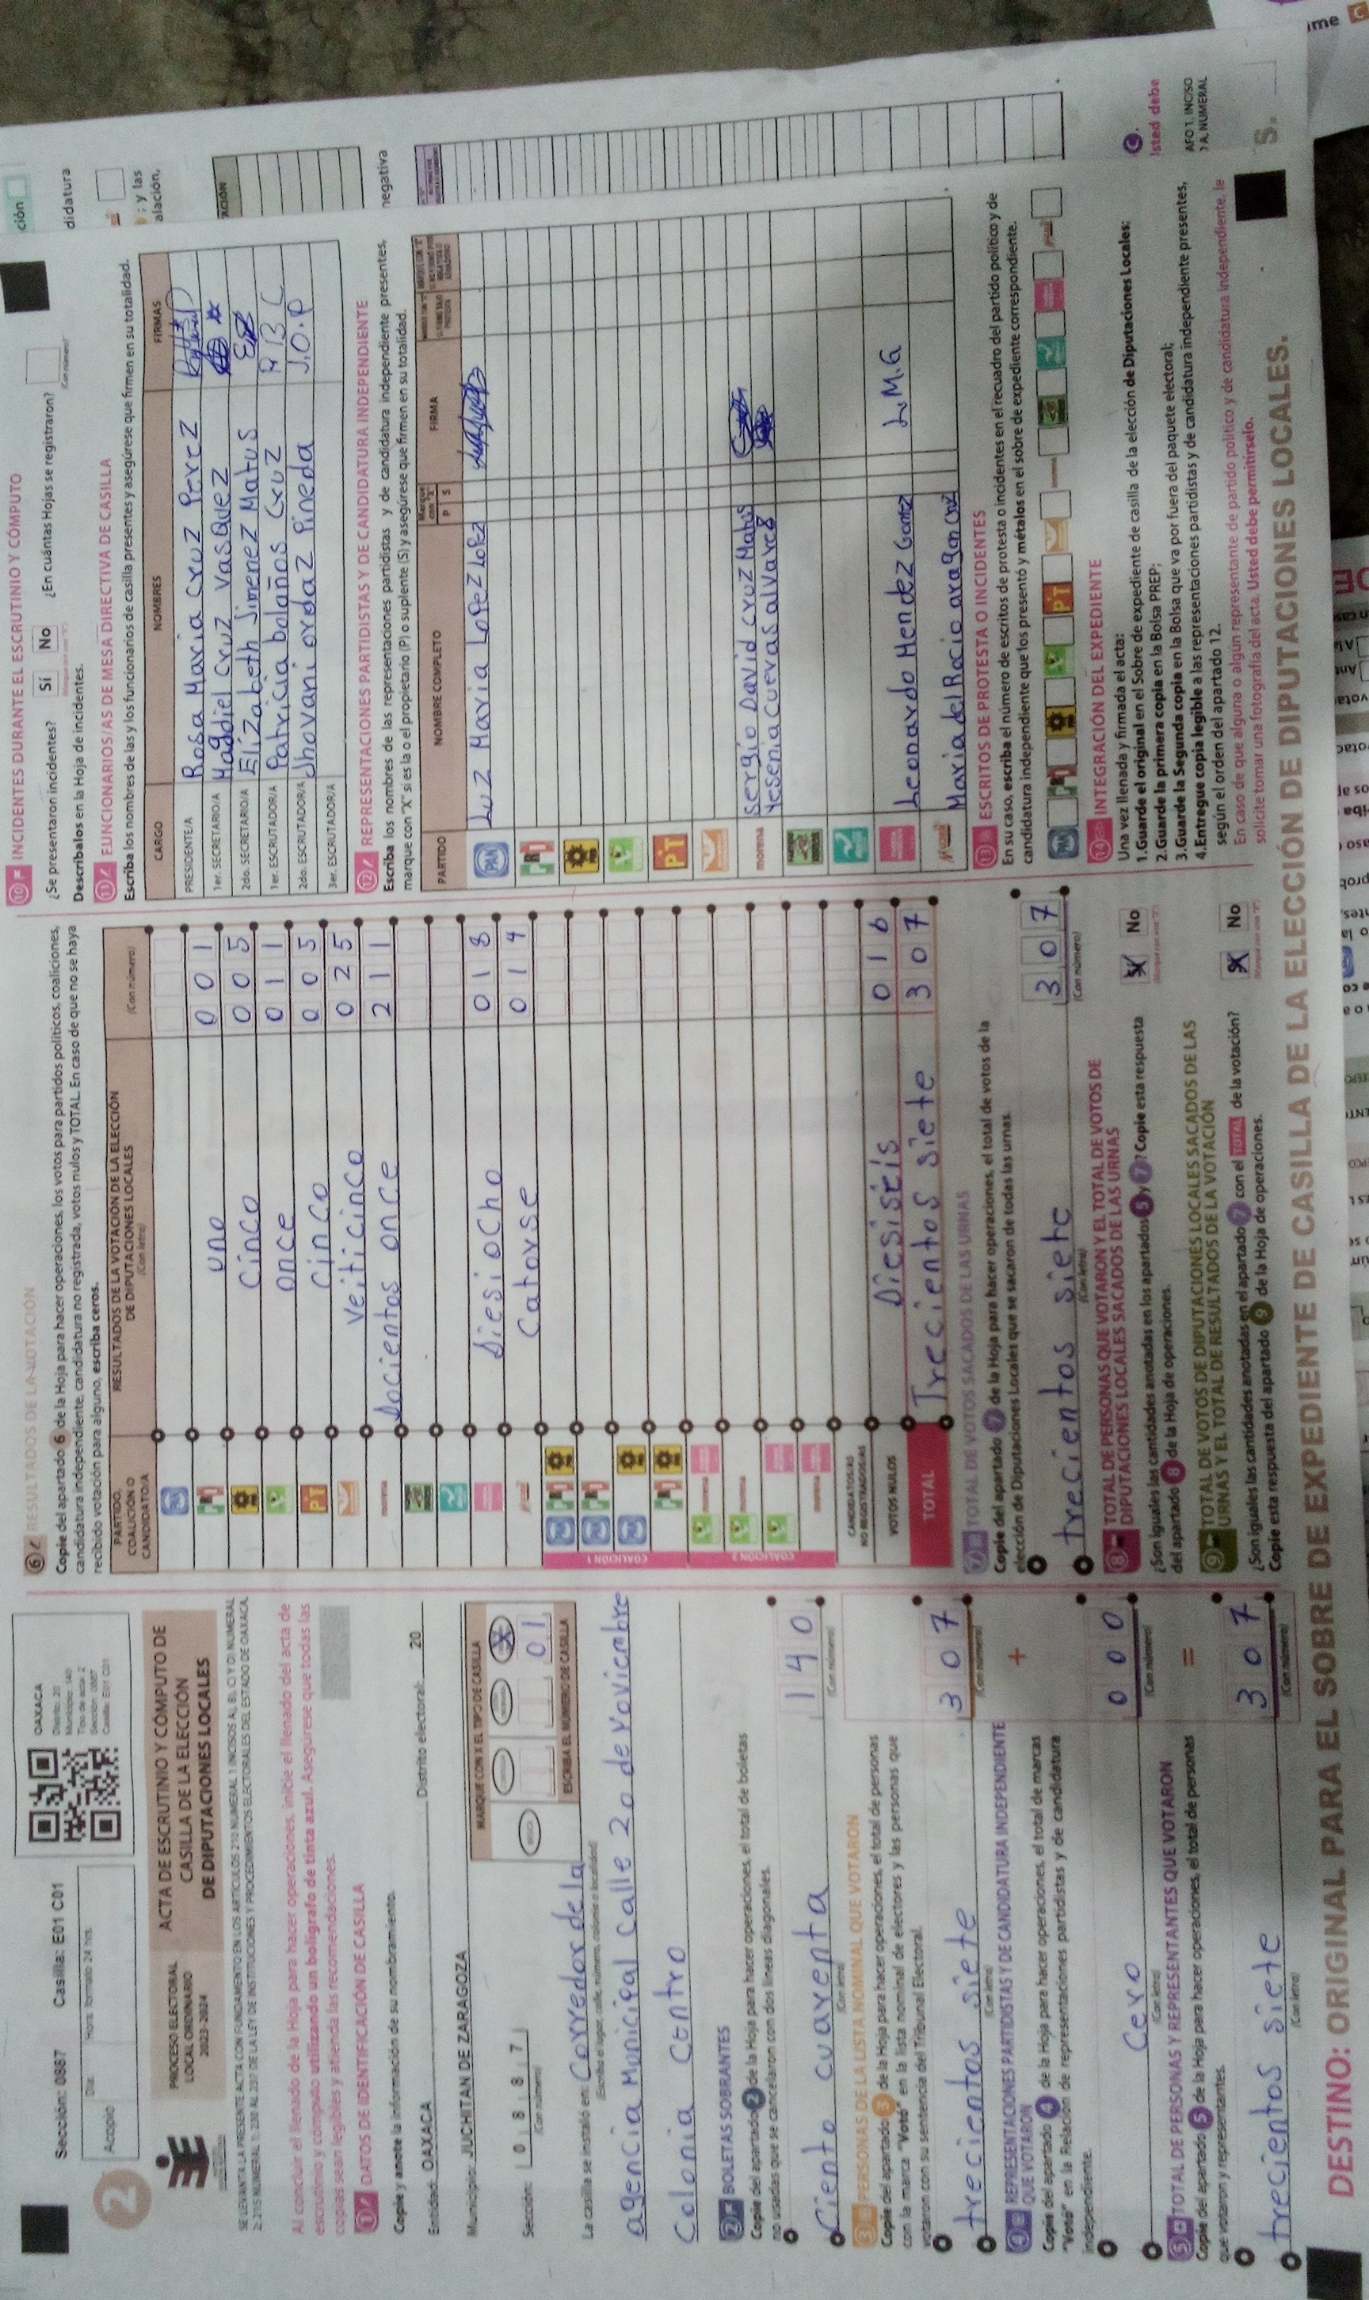 Sección: 0887 Casilla: E01 C01
OAXACA
Distrito: 20
Acopio
2
PROCESO ELECTORAL
LOCAL ORDINARIO
2023-2024
ACTA DE ESCRUTINIO Y CÓMPUTO DE
CASILLA DE LA ELECCIÓN
DE DIPUTACIONES LOCALES
Al concluir el llenado de la Hoja para hacer operaciones, inicie el llenado del acta de
escrutinio y cómputo utilizando un bolígrafo de tinta azul. Asegúrese que todas las
copias sean legibles y atienda las recomendaciones.
1 DATOS DE IDENTIFICACIÓN DE CASILLA
Copie y anote la información de su nombramiento.
Entidad: OAXACA Distrito electoral: 20
Municipio: JUCHITAN DE ZARAGOZA
Sección: 0 8 8 7
(Con número)
MARQUE CON X EL TIPO DE CASILLA
0 1
ESCRIBA EL NÚMERO DE CASILLA
La casilla se instaló en: Corredor de la
agencia Municipal calle 20 de Noviembre
Colonia Centro
2 BOLETAS SOBRANTES
Copie del apartado 2 de la Hoja para hacer operaciones, el total de boletas
no usadas que se cancelaron con dos líneas diagonales.
Ciento cuarenta 140
(Con letra) (Con número)
3 PERSONAS DE LA LISTA NOMINAL QUE VOTARON
Copie del apartado 3 de la Hoja para hacer operaciones, el total de personas
con la marca "Votó" en la lista nominal de electores y las personas que
votaron con su sentencia del Tribunal Electoral.
trecientos siete 307
(Con letra) (Con número)
+
4 REPRESENTACIONES PARTIDISTAS Y DE CANDIDATURA INDEPENDIENTE
QUE VOTARON
Copie del apartado 4 de la Hoja para hacer operaciones, el total de marcas
"Votó" en la Relación de representaciones partidistas y de candidatura
independiente.
Cero 000
(Con letra) (Con número)
=
5 TOTAL DE PERSONAS Y REPRESENTANTES QUE VOTARON
Copie del apartado 5 de la Hoja para hacer operaciones, el total de personas
que votaron y representantes.
trecientos siete 307
(Con letra) (Con número)
6 RESULTADOS DE LA VOTACIÓN
Copie del apartado 6 de la Hoja para hacer operaciones, los votos para partidos políticos, coaliciones,
candidatura independiente, candidatura no registrada, votos nulos y TOTAL. En caso de que no se haya
recibido votación para alguno, escriba ceros.
PARTIDO,
COALICIÓN O
CANDIDATO/A
RESULTADOS DE LA VOTACIÓN DE LA ELECCIÓN
DE DIPUTACIONES LOCALES
(Con letra) (Con número)
PRI uno 001
cinco 005
once 011
PT cinco 005
veiticinco 025
morena docientos once 211
Diesiocho 018
Catorse 014
COALICIÓN 1
COALICIÓN 2
CANDIDATOS/AS
NO REGISTRADOS/AS
VOTOS NULOS Diesiseis 016
TOTAL Trecientos siete 307
7 TOTAL DE VOTOS SACADOS DE LAS URNAS
Copie del apartado 7 de la Hoja para hacer operaciones, el total de votos de la
elección de Diputaciones Locales que se sacaron de todas las urnas.
trecientos siete 307
(Con letra) (Con número)
8 TOTAL DE PERSONAS QUE VOTARON Y EL TOTAL DE VOTOS DE
DIPUTACIONES LOCALES SACADOS DE LAS URNAS
¿Son iguales las cantidades anotadas en los apartados 5 y 7? Copie esta respuesta
del apartado 8 de la Hoja de operaciones.
Sí No
9 TOTAL DE VOTOS DE DIPUTACIONES LOCALES SACADOS DE LAS
URNAS Y EL TOTAL DE RESULTADOS DE LA VOTACIÓN
¿Son iguales las cantidades anotadas en el apartado 7 con el TOTAL de la votación?
Copie esta respuesta del apartado 9 de la Hoja de operaciones.
Sí No
10 INCIDENTES DURANTE EL ESCRUTINIO Y CÓMPUTO
¿Se presentaron incidentes? Sí No ¿En cuántas Hojas se registraron?
(Con número)
Descríbalos en la Hoja de incidentes.
11 FUNCIONARIOS/AS DE MESA DIRECTIVA DE CASILLA
Escriba los nombres de las y los funcionarios de casilla presentes y asegúrese que firmen en su totalidad.
CARGO NOMBRES FIRMAS
PRESIDENTE/A Rosa Maria Cruz Perez
1er. SECRETARIO/A Magdiel Cruz Vasquez
2do. SECRETARIO/A Elizabeth Jimenez Matus
1er. ESCRUTADOR/A Patricia bolaños Cruz P B C
2do. ESCRUTADOR/A Jhovani ordaz Pineda J.O.P
3er. ESCRUTADOR/A
12 REPRESENTACIONES PARTIDISTAS Y DE CANDIDATURA INDEPENDIENTE
Escriba los nombres de las representaciones partidistas y de candidatura independiente presentes,
marque con "X" si es la o el propietario (P) o suplente (S) y asegúrese que firmen en su totalidad.
PARTIDO NOMBRE COMPLETO Marque con "X" P S FIRMA
PAN Luz Maria Lopez Lopez
PRI
PT
morena Sergio David Cruz Matus
Yesenia Cuevas alvarez
Leonardo Mendez Gomez L.M.G
Maria del Rocio aragon Cruz
13 ESCRITOS DE PROTESTA O INCIDENTES
En su caso, escriba el número de escritos de protesta o incidentes en el recuadro del partido político y de
candidatura independiente que los presentó y métalos en el sobre de expediente correspondiente.
14 INTEGRACIÓN DEL EXPEDIENTE
Una vez llenada y firmada el acta:
1.Guarde el original en el Sobre de expediente de casilla de la elección de Diputaciones Locales;
2.Guarde la primera copia en la Bolsa PREP;
3.Guarde la Segunda copia en la Bolsa que va por fuera del paquete electoral;
4.Entregue copia legible a las representaciones partidistas y de candidatura independiente presentes,
según el orden del apartado 12.
En caso de que alguna o algún representante de partido político y de candidatura independiente, le
solicite tomar una fotografía del acta. Usted debe permitírselo.
DESTINO: ORIGINAL PARA EL SOBRE DE EXPEDIENTE DE CASILLA DE LA ELECCIÓN DE DIPUTACIONES LOCALES.
ción
didatura
; y las
alación.
negativa
Isted debe